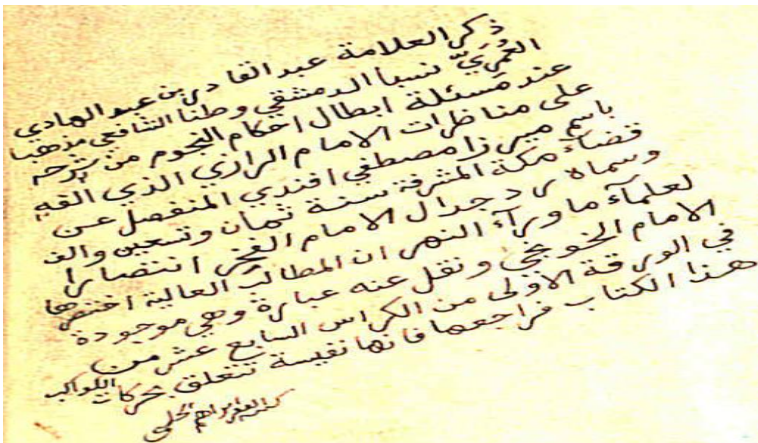 ذكر العلامة عبد القادر بن عبد الهادي
العُمَريّ نسبا الدمشقي وطنا الشافعي مذهبا
عند مسئلة ابطال احكام النجوم من شرحه
على مناظرات الامام الرازي الذي الفه
باسم ميرزا مصطفي افندي المنفصل عن
قضاء مكة المشرفة سنة ثمان وتسعين والف
وسماه رد جدال الامام الفخر انتصارا
لعلماء ما وراء النهر ان المطالب العالية اختصرها
الامام الخونجي ونقل عنه عبارة وهي موجودة
في الورقة الاولى من الكراس السابع عشر من
هذا الكتاب فراجعها فانها نفيسة تتعلق بحركات الكواكب
كتبه الفقير ابراهيم الحلبي